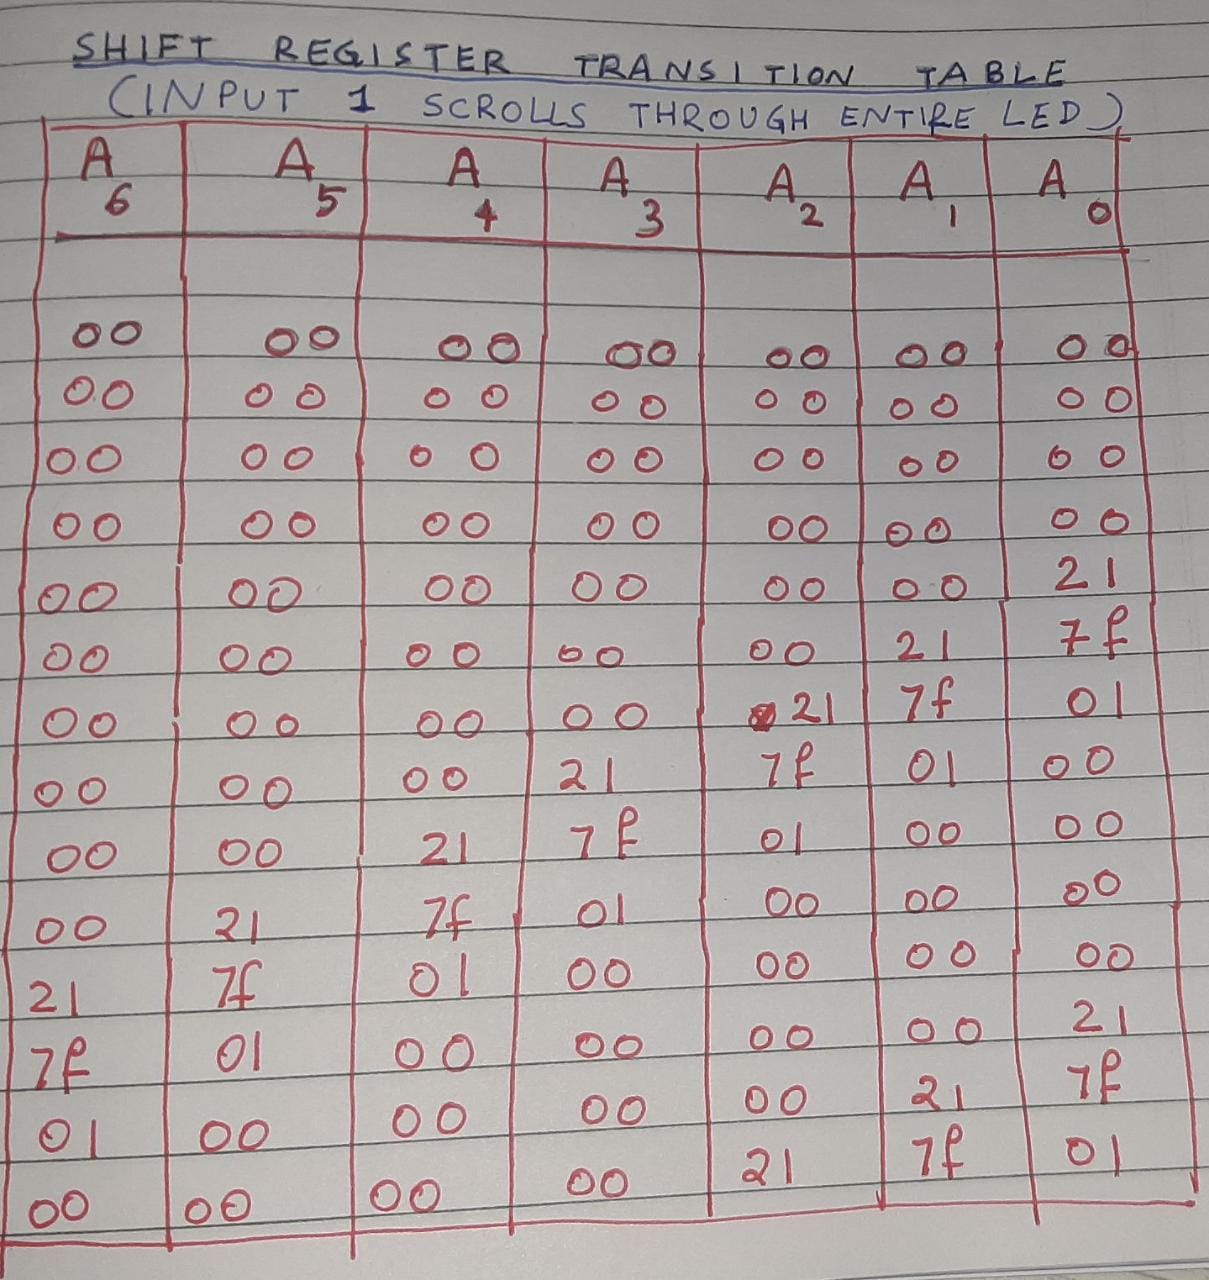 SHIFT REGISTER TRANSITION TABLE
(INPUT 1 SCROLLS THROUGH ENTIRE LED)
A6 A5 A4 A3 A2 A1 A0
00 00 00 00 00 00 00
00 00 00 00 00 00 00
00 00 00 00 00 00 00
00 00 00 00 00 00 00
00 00 00 00 00 00 21
00 00 00 00 00 21 7f
00 00 00 00 21 7f 01
00 00 00 21 7f 01 00
00 00 21 7f 01 00 00
00 21 7f 01 00 00 00
21 7f 01 00 00 00 00
7f 01 00 00 00 00 21
01 00 00 00 00 21 7f
00 00 00 00 21 7f 01